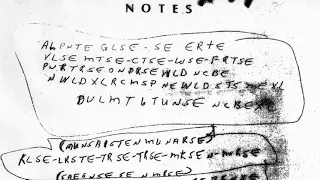 NOTES
ALPNTE GLSE-SE ERTE
VLSE MTSE-CTSE-WSE-FRTSE
PNRTRSEONDRSEWLD NCBE
NWLDXLRCMSP NEWLDSTS ME XL
DULMT6TUNSE NCBEXC
(MUNSARSTENMUNARSE)
KLSE-LRSTE-TRSE-TRSE-MKSEN-MRSE
(SAEGNSE SE NMRSE)